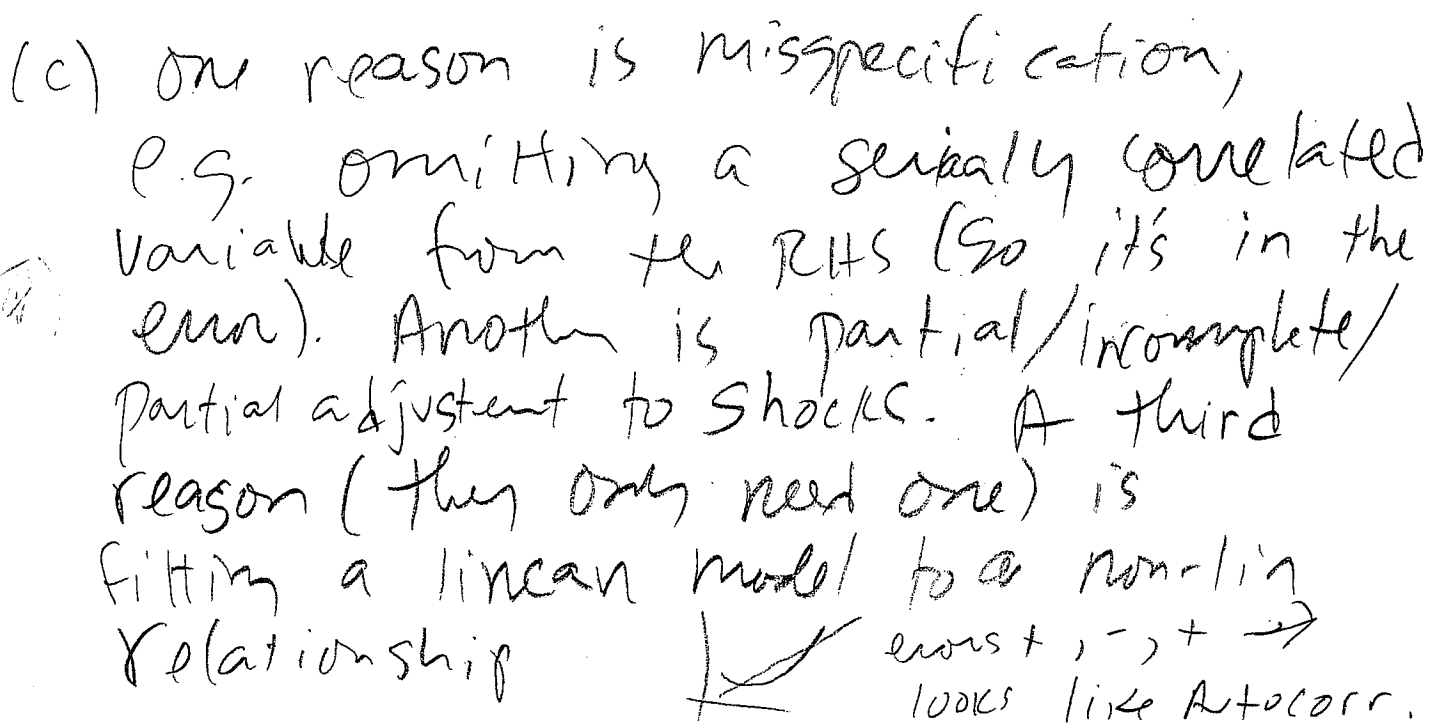 (c) one reason is misspecification,
e.g. omitting a serially correlated
variable from the RHS (so it's in the
error). Another is partial/incomplete/
partial adjustent to shocks. A third
reason (they only need one) is
fitting a linear model to a non-lin
relationship errors +, -, + →
looks like Autocorr.